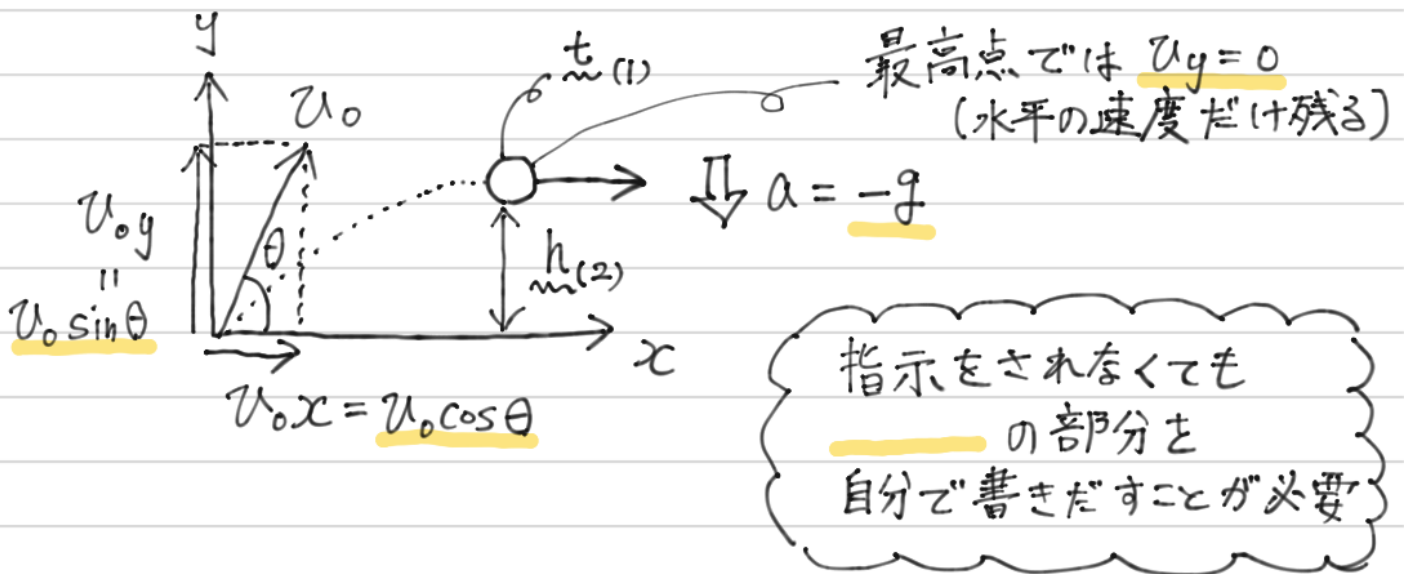 y
v₀
t (1)
最高点では vy=0
(水平の速度だけ残る)
a = -g
v₀y
=
v₀ sinθ
θ
h (2)
x
v₀x = v₀cosθ
指示をされなくても
の部分を
自分で書きだすことが必要